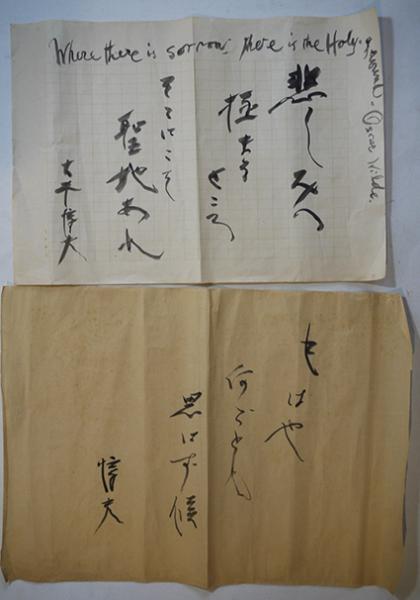 Where there is sorrow, there is the Holy ground - Oscar Wilde.
悲しみの
極まる
ところ
そこにこそ
聖地あれ
大木惇夫
もはや
何ごとも
思はず候
惇夫